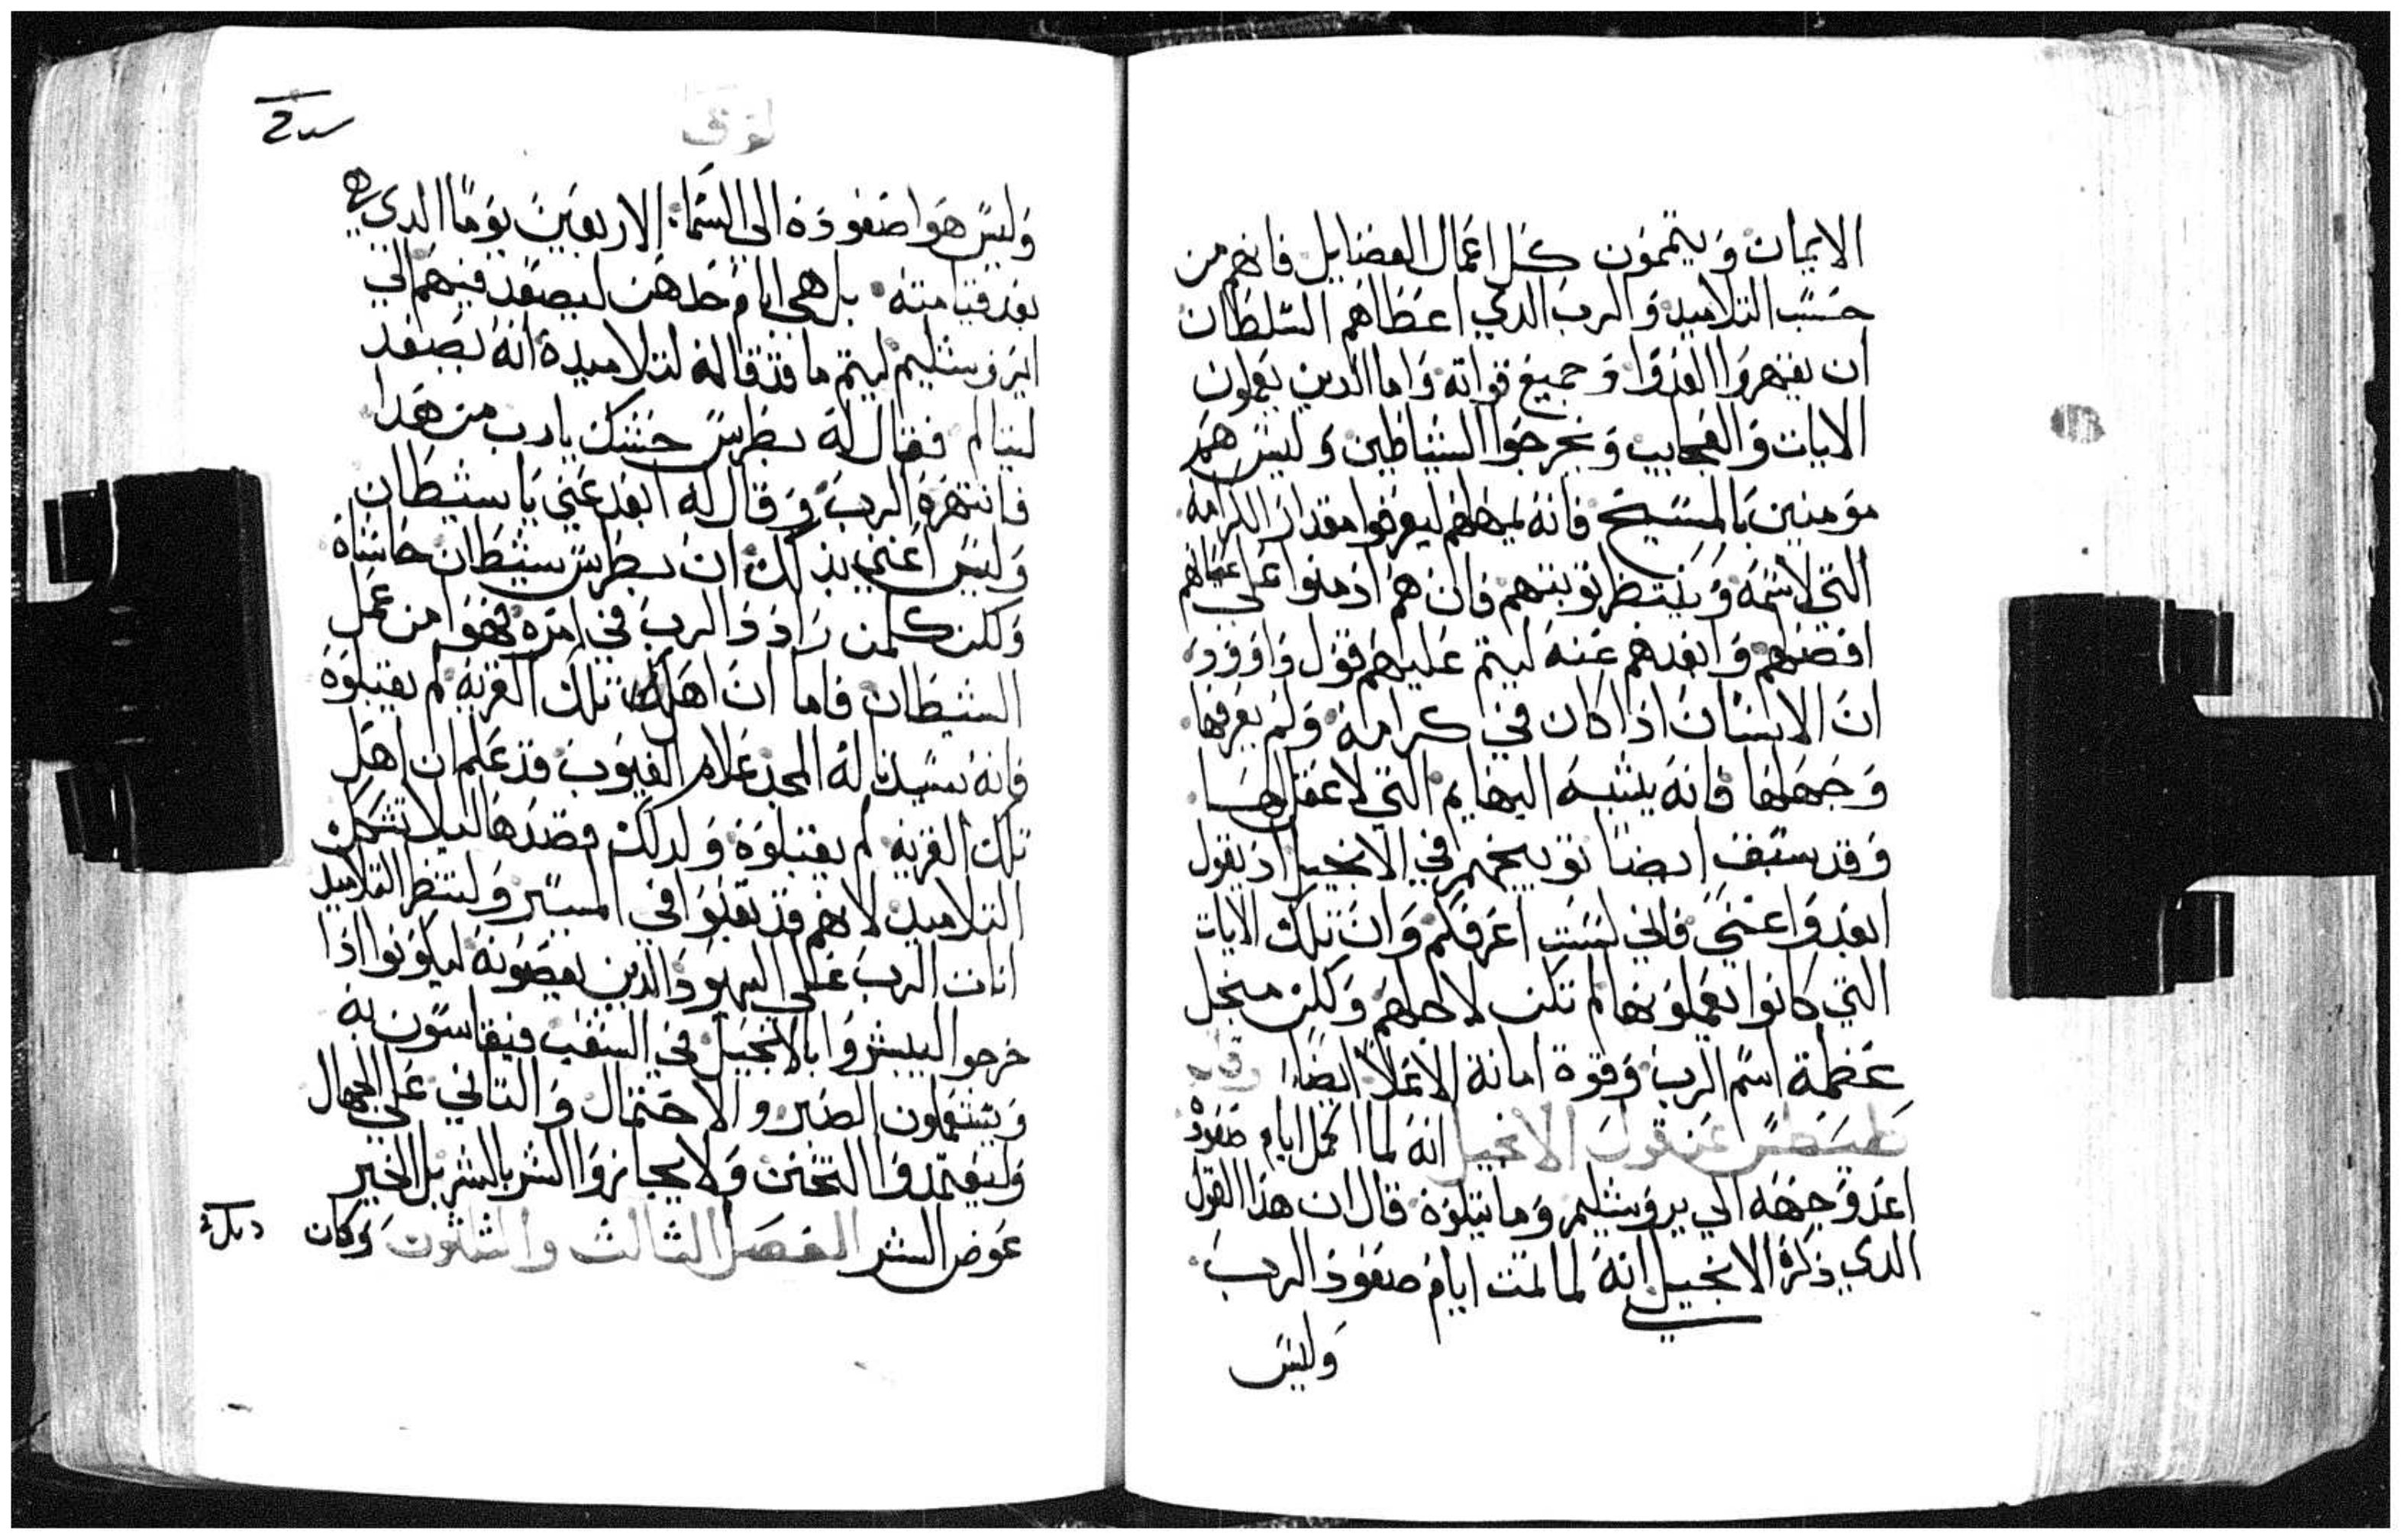 الايمان وَيتممون كل اعمال الفضايل فانهم من
حسب التلاميد وَالرب الدي اعطاهم السلطان
ان يقهروا العدوا وَجميع قواته وَاما الدين يعملون
الايات وَالعجايب وَيخرجوا الشياطين وَليس هم
مومنين بالمسيح فانه يمهلهم ليعرفوا مقدار الكرامه
التي لاسمه وَينتظر توبتهم فان هم ادمنوا على اعمالهم
افضحهم وَابعدهم عنه ليتم عليهم قول داوود
ان الانسان اذا كان في كرامة وَلم يعرفها
وَجهلها فانه يشبه البهايم التي لا عقل لها
وَقد سبق ايضًا توبيخهم في الانجيل اذ يقول
ابعدوا عني فاني لست اعرفكم وَان تلك الايات
التي كانوا يعملونها لم تكن لاجلهم وَلكن منجل
عظمة اسم الرب وَقوة امانة ايضًا
عن قول الانجيل انه لما اكمل ايام صعوده
اعد وَجهه الي يروشليم وَما يتلوه قال ان هذا القول
الدي ذكره الانجيل انه لما تمت ايام صعود الرب
وَليس
لوقا
وَليس هوا صعوده الي السما الاربعين يومًا الدي
بعد قيامته بل هي ايام حدهن ليصعد فيهم الي
ايروشليم ليتم ما قد قاله لتلاميده انه يصعد
ليتالم فقال له بطرس حشتك يا رب من هدا
فانتهره الرب وَقال له ابعد عني يا شيطان
وَليس اعني بذلك ان بطرس شيطان حاشاه
وَلكن كلمن رادد الرب في امره فهوا من عمل
الشيطان فاما ان اهل تلك القريه لم يقبلوه
فانه سيدنا له المجد علام الغيوب قد علم ان اهل
تلك القريه لم يقبلوه وَلدلك قصدها
التلاميد لانهم قد تعبوا في المسير وَلينظر التلاميد
انات الرب على اليهود الدين يعصونه ليكونوا اذا
خرجوا ليبشروا بالانجيل في الشعب فيقاسون به
وَيستعملون الصبر والاحتمال وَالتاني على الجهال
وَليعتمدوا التحنن وَلا يجازوا الشر بالشر بل الخير
عوض الشر الفصل الثالث والثلثون وَكان